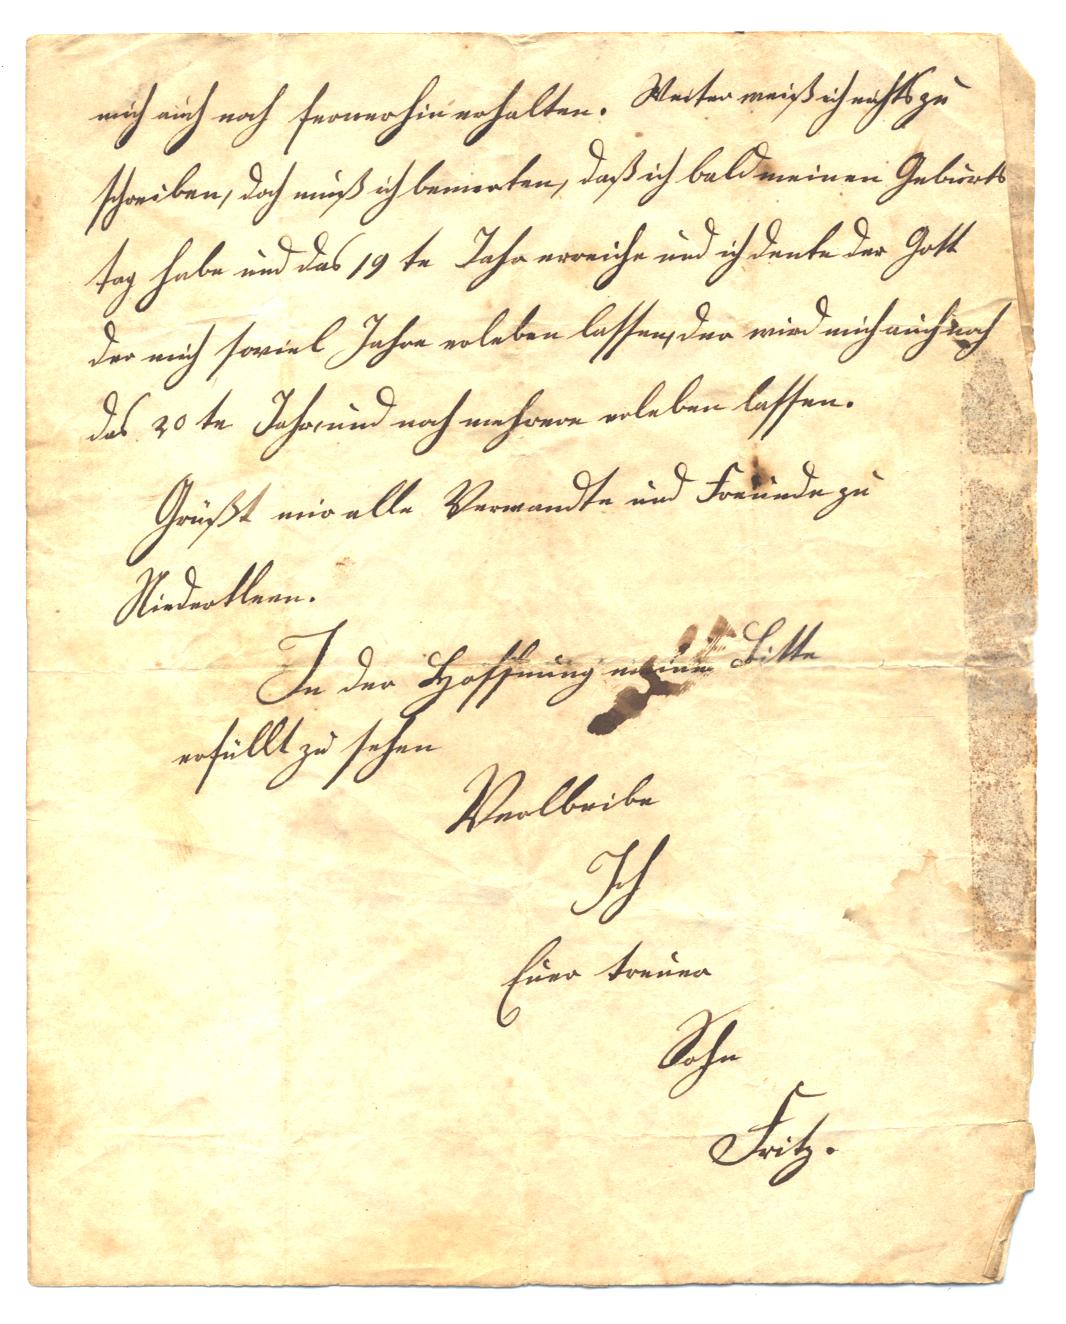 mich auch noch fernerhin erhalten. Weiter weiß ich nichts zu
schreiben, doch muß ich bemerken, daß ich bald meinen Geburts
tag habe und das 19 te Jahr erreiche und ich denke der Gott
der mich soviel Jahre erleben lassen, der wird mich auch noch
das 20 te Jahr und noch mehrere erleben lassen.
Grüßt mir alle Verwandte und Freunde zu
Niederkleen.
In der Hoffnung meine Bitte
erfüllt zu sehen
Verbleibe
Ich
Euer treuer
Sohn
Fritz.